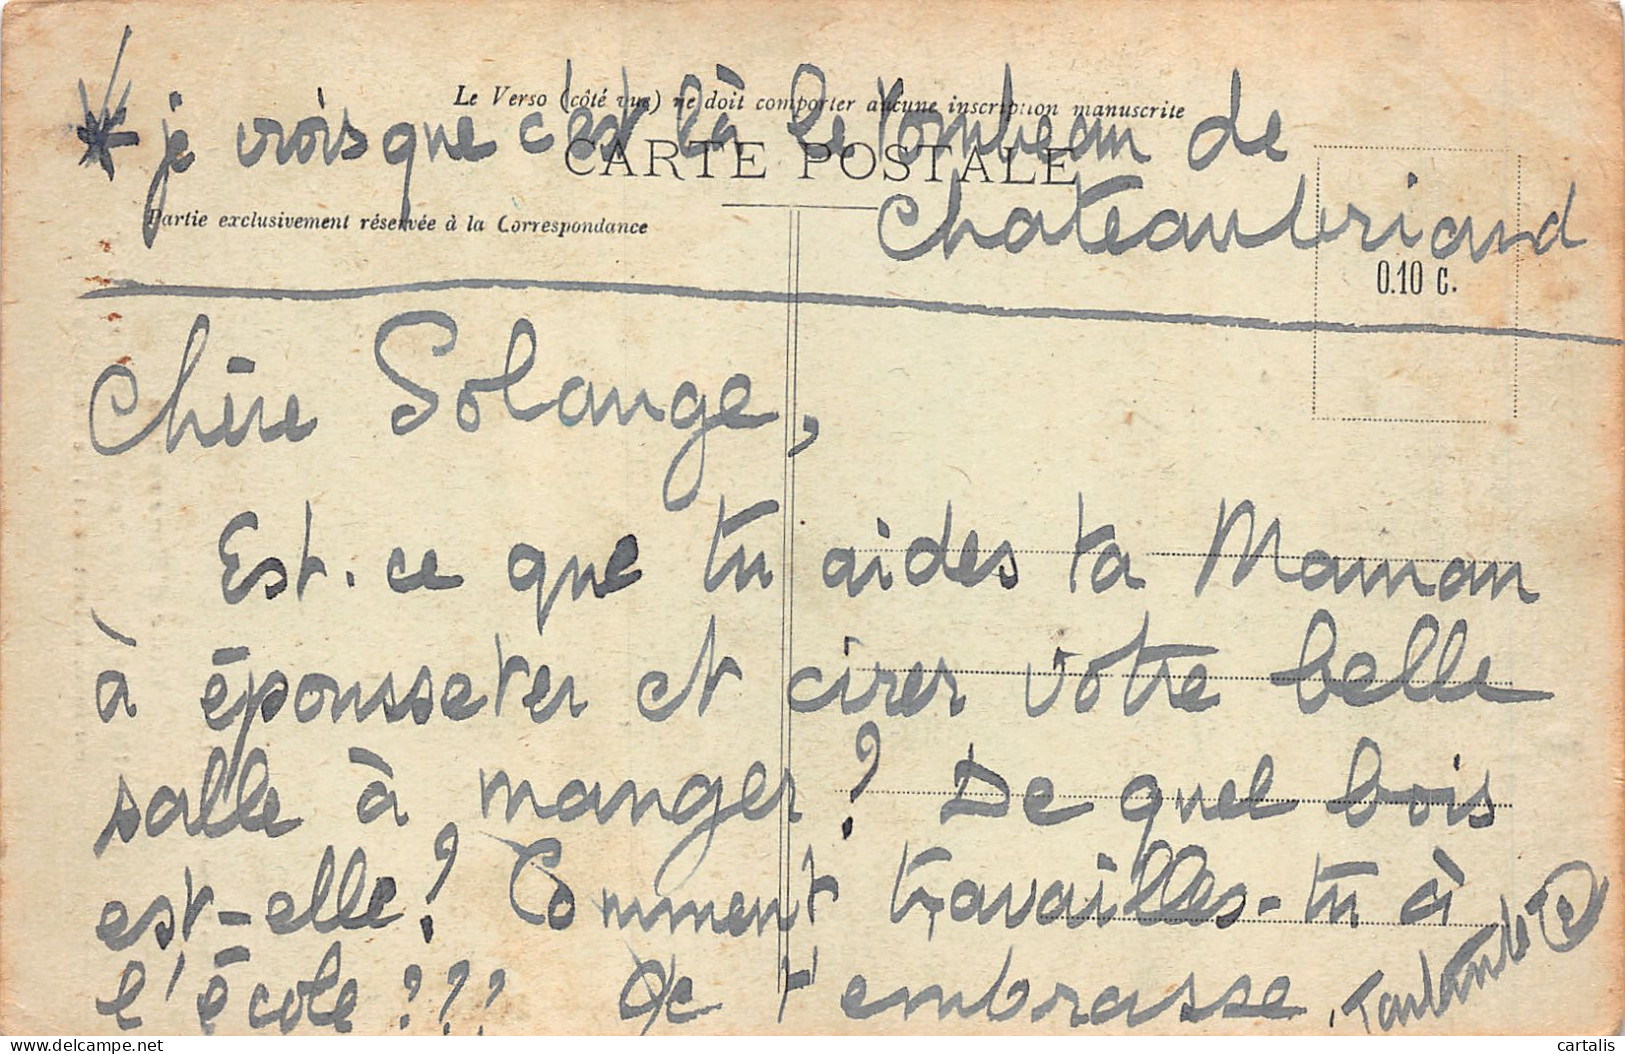 Le Verso (côté vue) ne doit comporter aucune inscription manuscrite
* je crois que c'est là le tombeau de
CARTE POSTALE
Partie exclusivement réservée à la Correspondance
Chateaubriand
0.10 C.
Chère Solange,
Est-ce que tu aides ta Maman
à épousseter et cirer votre belle
salle à manger ? De quel bois
est-elle ? Comment travailles-tu à
l'école ??? Je t'embrasse.
cartalis